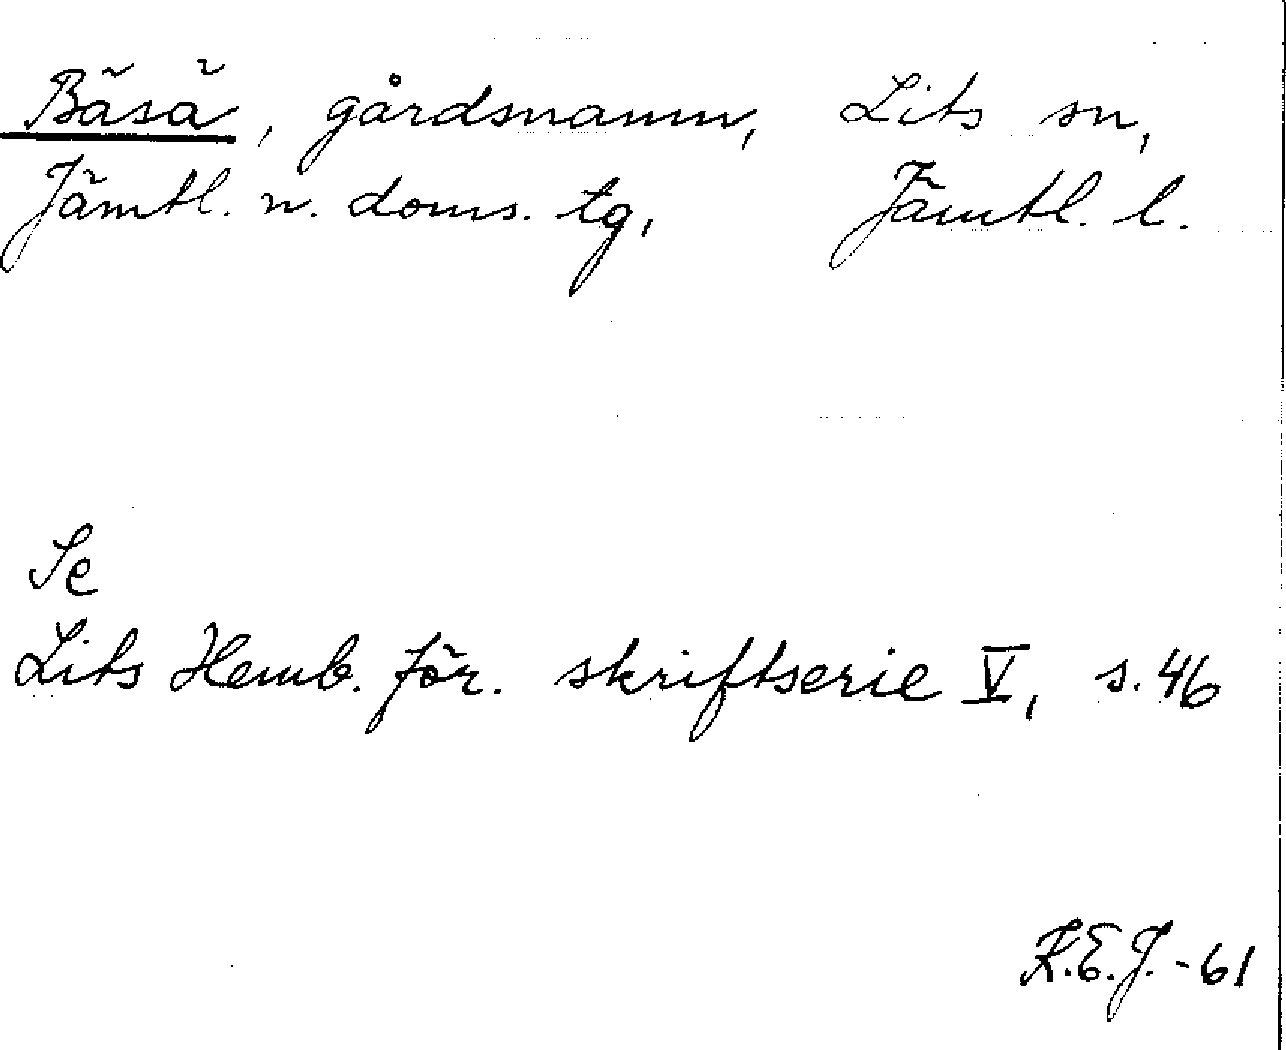 Bäsä, gårdsnamn, Lits sn,
Jämtl. n. doms. tg, Jämtl. l.
Se
Lits Hemb. för. skriftserie V, s. 46
K.E.J. -61